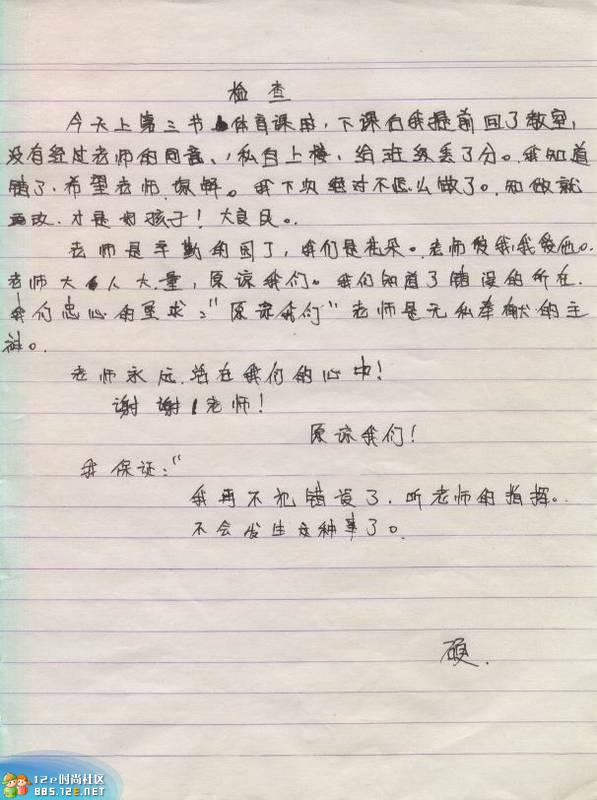 检查
今天上第三节体育课时,下课后我提前回了教室,
没有经过老师的同意、私自上楼,给班级丢了分。我知道
错了,希望老师,原解。我下次绝对不怎么做了。知做就
改,才是好孩子!大良民。
老师是辛勤的园丁,我们是花朵。老师爱我,我爱他。
老师大人大量,原谅我们。我们知道了错误的所在,
我们忠心的恳求:“原谅我们”老师是无私奉献的主
神。
老师永远活在我们的心中!
谢谢老师!
原谅我们!
我保证:“
我再不犯错误了,听老师的指挥。
不会发生这种事了。
硕.
12e时尚社区
BBS.12E.NET